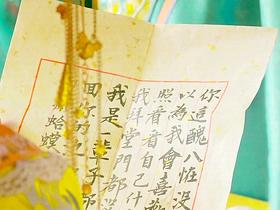 你這醜八怪沒
以為我會喜歡
照看看自己什
我拜堂門都沒
我是一輩子
回你另
癩蛤蟆